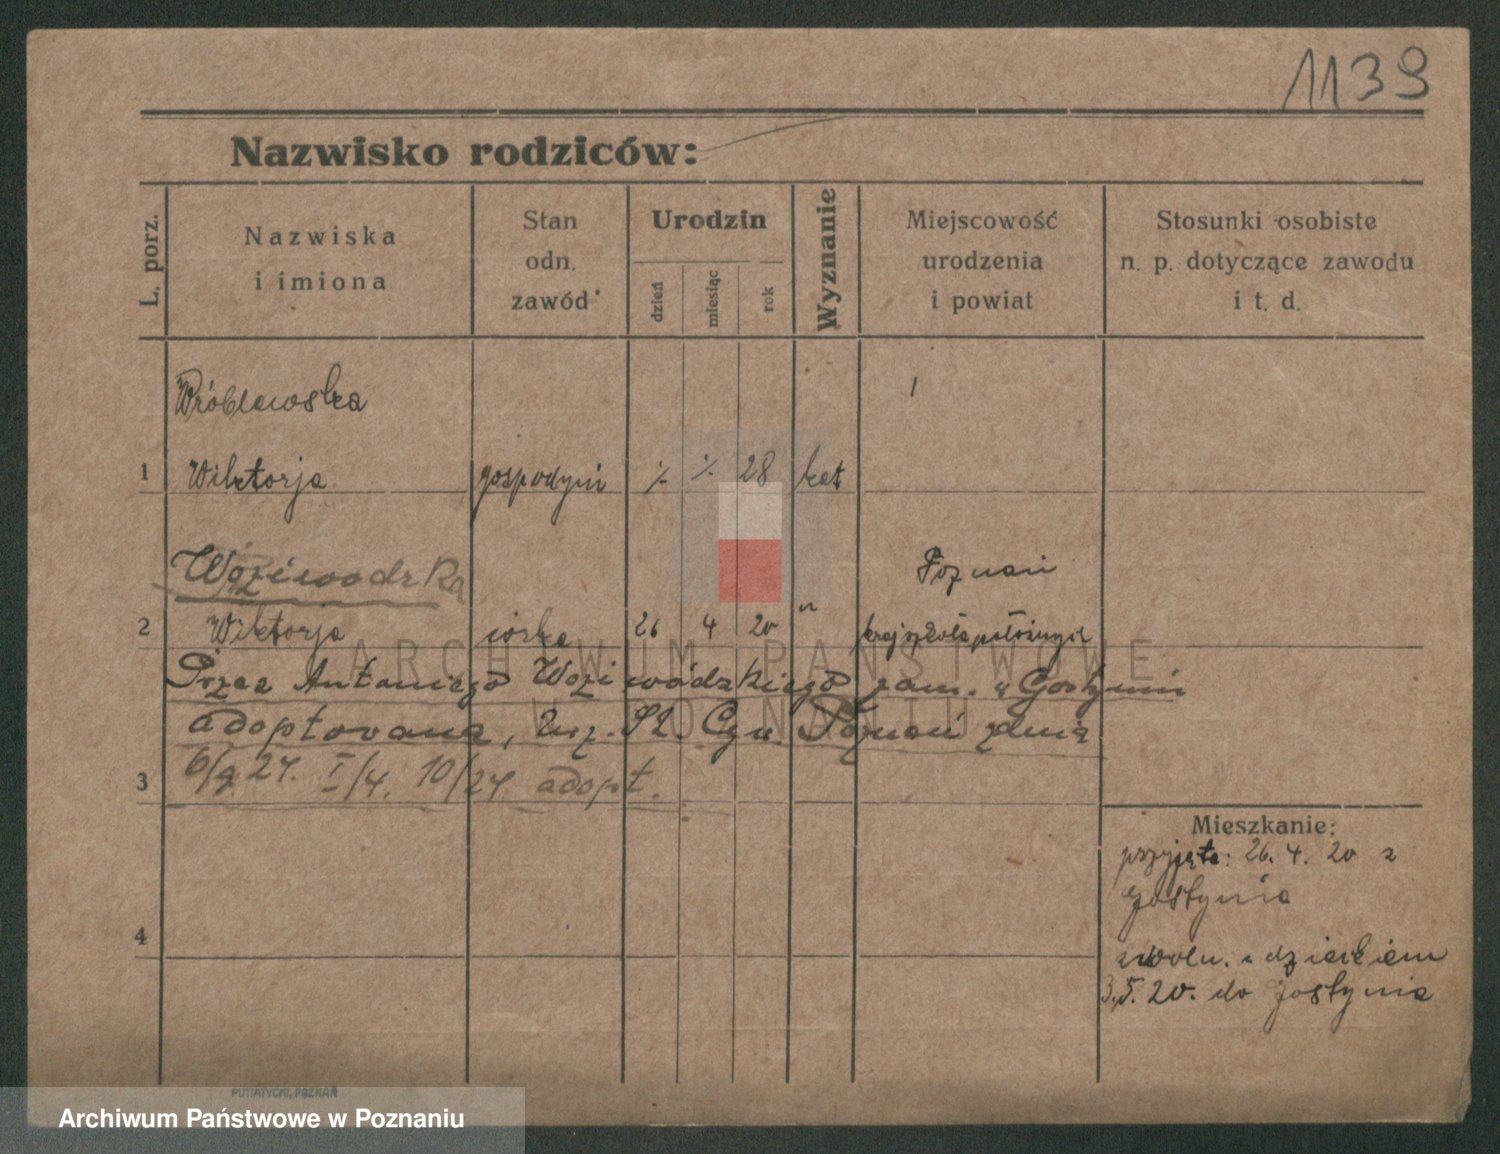 1139
Nazwisko rodziców:
L. porz.
Nazwiska
i imiona
Stan
odn.
zawód
Urodzin
dzień
miesiąc
rok
Wyznanie
Miejscowość
urodzenia
i powiat
Stosunki osobiste
n. p. dotyczące zawodu
i t. d.
Wróblewska
1 Wiktorja gospodyni ·/. ·/. 28 kat
Woziwodzka
Poznań
2 Wiktorja córka 26 4 20 " kraj szkoła położnych
Przez Antoniego Woziwódzkiego zam. w Gostyniu
adoptowana, Urz. St. Cyw. Poznań dnia
3 6/9 24. I/4. 10/24 adopt.
4
Mieszkanie:
przyjęta: 26. 4. 20 z
Gostynia
zwoln. z dzieckiem
3.5. 20. do Gostynia
PUTIATYCKI, POZNAŃ
ARCHIWUM PAŃSTWOWE
W POZNANIU
Archiwum Państwowe w Poznaniu